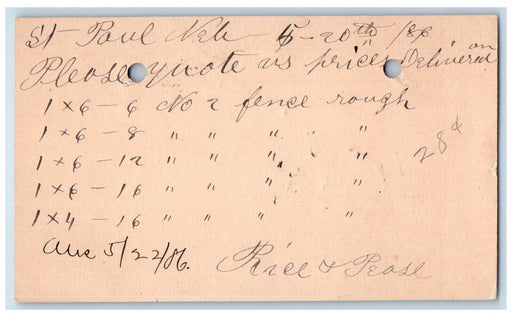 St Paul Neb - 5 - 20th /86
Please quote us prices Delivered on
1 x 6 - 6 No 2 fence rough
1 x 6 - 8 " " " " "
1 x 6 - 12 " " " " "
1 x 6 - 16 " " " "
1 x 4 - 16 " " " "
284
Ans 5/22/86.
Rice & Pease